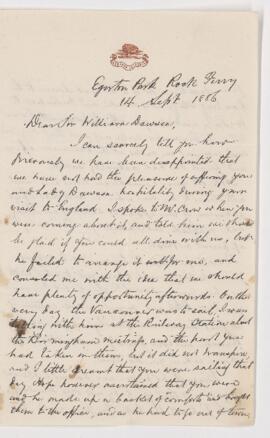 Egerton Park Rock Ferry
14 Sept 1886
Dear Sir William Dawson,
I can scarcely tell you how
grievously we have been disappointed that
we have not had the pleasure of offering you
and Lady Dawson hospitality during your
visit to England. I spoke to Mr. Crow when you
were coming about it, and told him we should
be glad if you could all dine with us, but
he failed to arrange it with for me, and
comforted me with the idea that we should
have plenty of opportunity afterwards. On the
very day the Vancouver was to sail, I was
talking with him at the Railway Station about
the Birmingham meetings, and the part you
had taken in them, but it did not transpire,
and I little dreamt that you were sailing that
day. Hope however ascertained that you were
and he made up a basket of comforts and brought
them to the office, and as he had to go out of town,